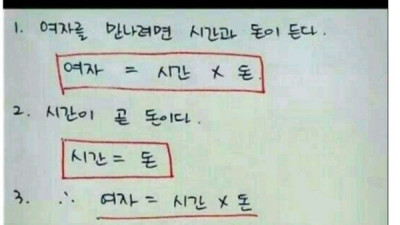 1. 여자를 만나려면 시간과 돈이 든다.
여자 = 시간 × 돈.
2. 시간이 곧 돈이다.
시간 = 돈
3. ∴ 여자 = 시간 × 돈